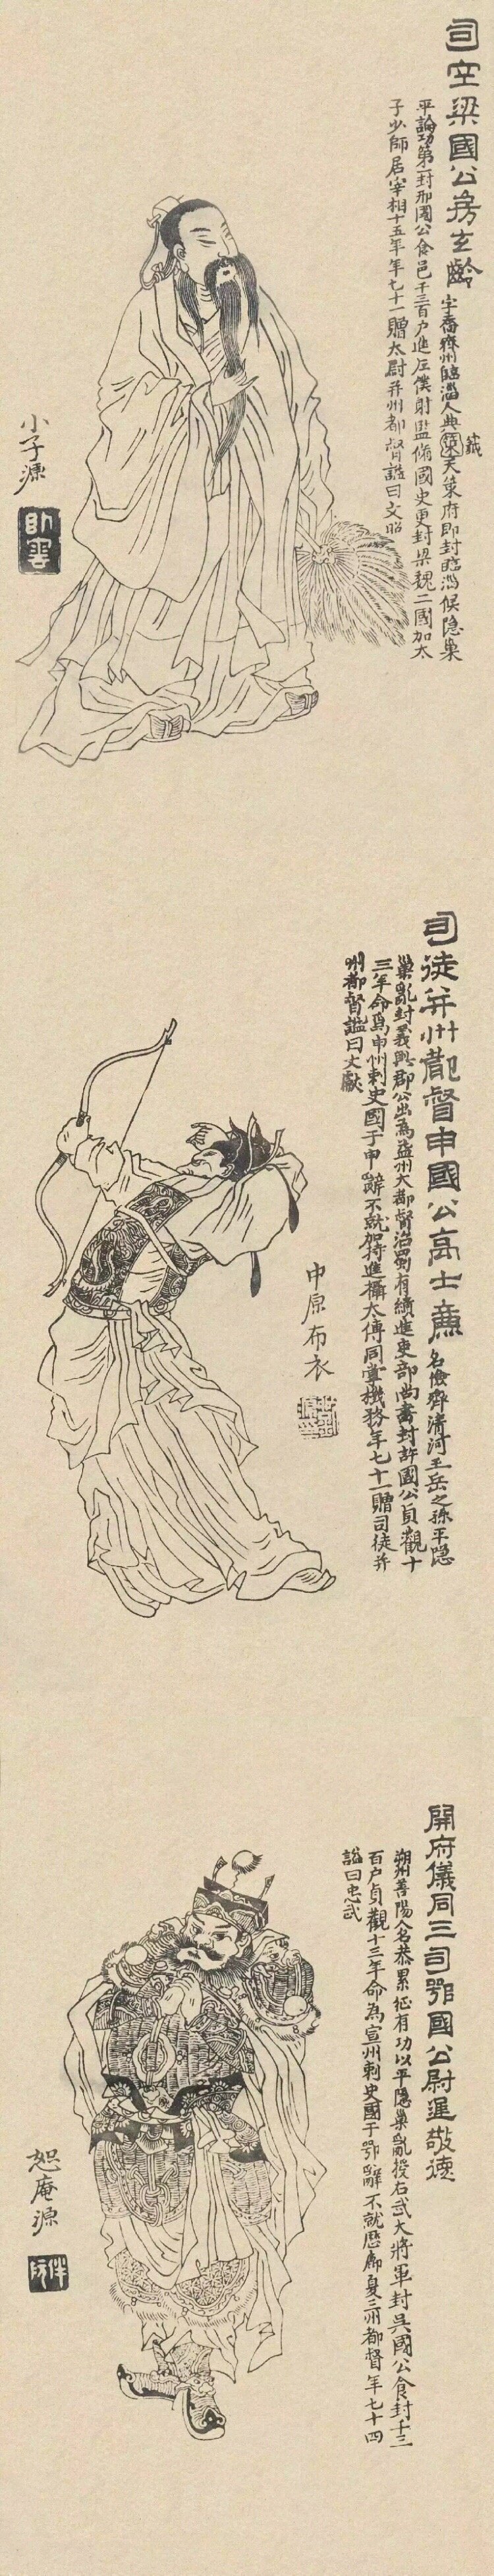 司空梁國公房玄齡
字喬齊州臨淄人典籤天策府即封臨淄侯隱巢
平論功第一封邢國公食邑千三百户進左僕射監脩國史更封梁魏二國加太
子少師居宰相十五年年七十一贈太尉并州都督諡曰文昭
小子源
臥雲
司徒并州都督申國公高士廉
名儉齊清河王岳之孫平隐
巢亂封義興郡公出為益州大都督治蜀有績進吏部尚書封許國公貞觀十
三年命爲申州刺史國于申辭不就加特進攝太傅同掌機務年七十一贈司徒并
州都督諡曰文獻
中原布衣
開府儀同三司鄂國公尉遲敬德
朔州善陽人名恭累征有功以平隐巢亂授右武大將軍封吳國公食封千三
百户貞觀十三年命為宣州刺史國于鄂辭不就歷鄜夏三州都督年七十四
諡曰忠武
恕庵源